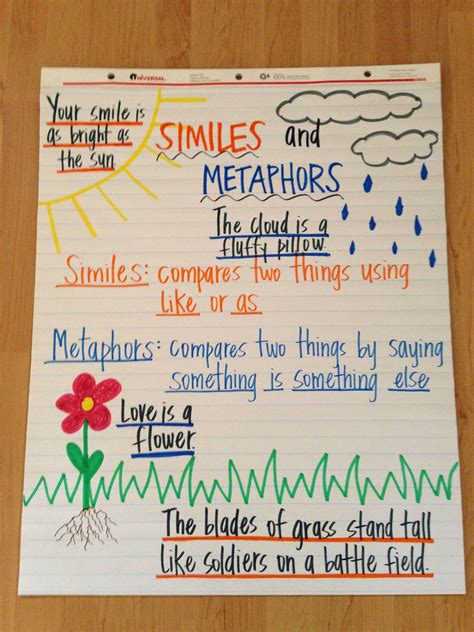 UNIVERSAL
Your smile is
as bright as
the sun.
SIMILES and
METAPHORS
The cloud is a
fluffy pillow.
Similes: compares two things using
like or as
Metaphors: compares two things by saying
something is something else
Love is a
flower.
The blades of grass stand tall
Like soldiers on a battle field.